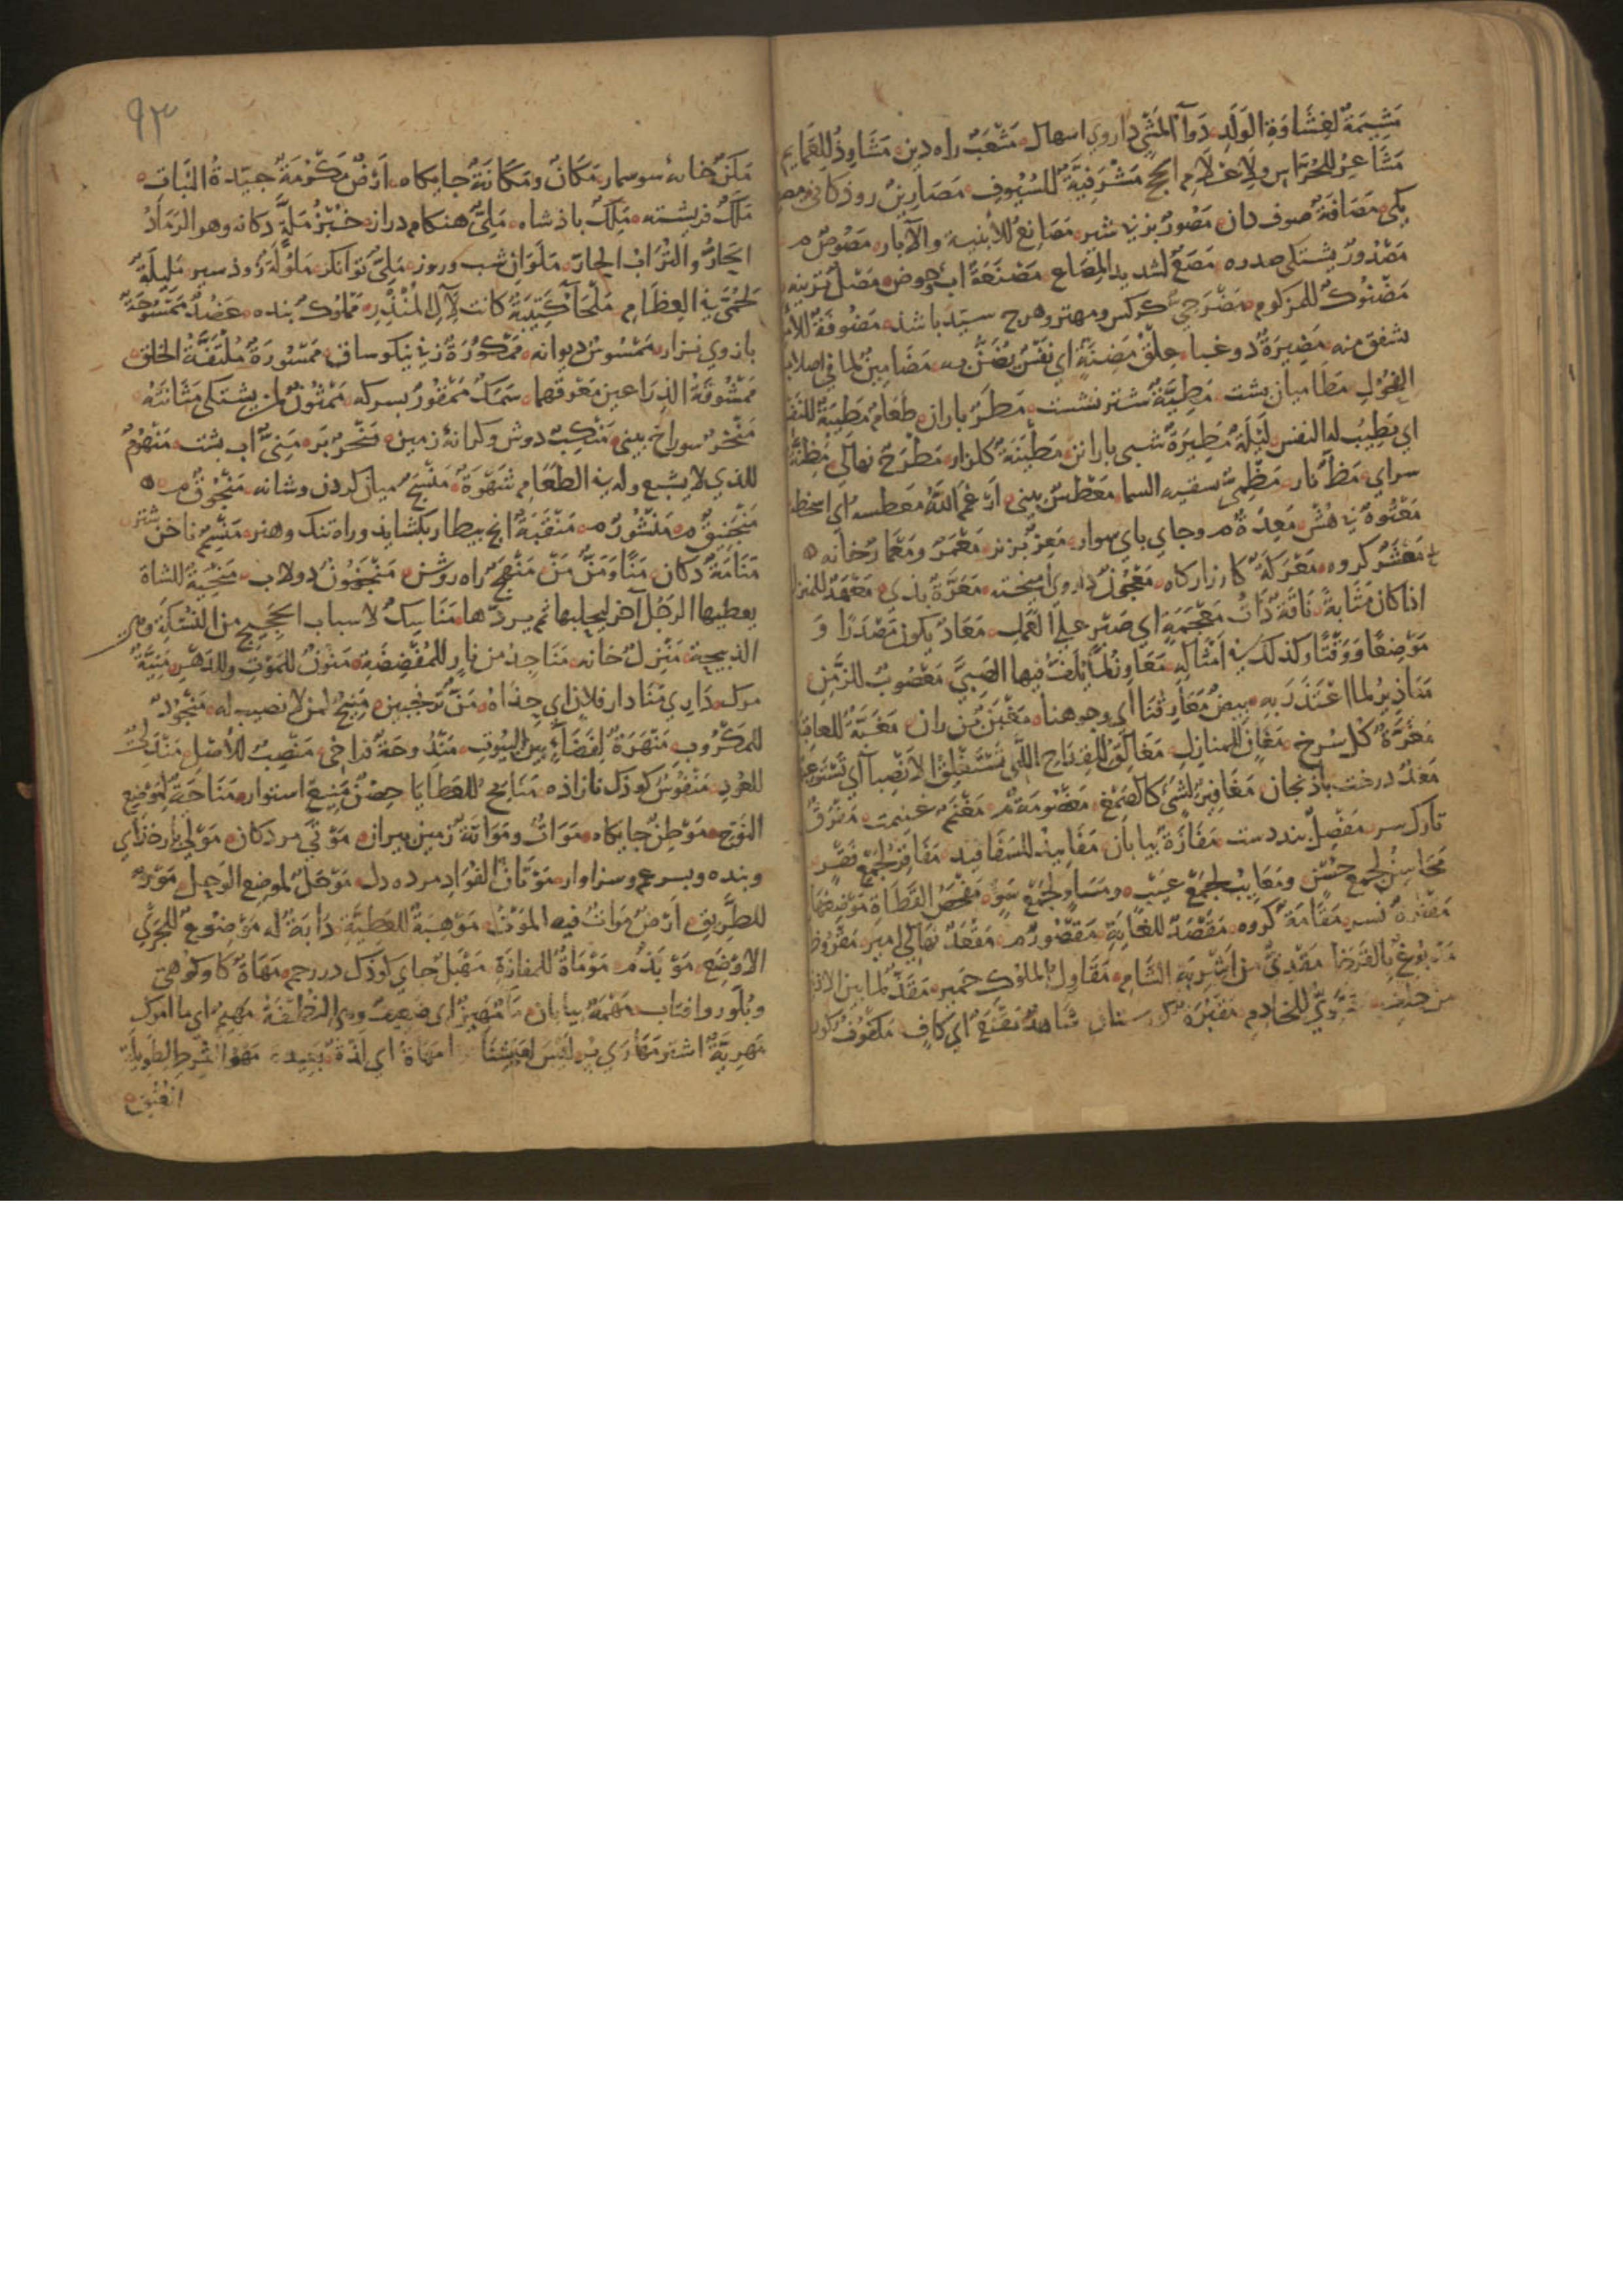 مَشِيمَةٌ لِغِشَاوَةِ الوَلَدِ دَوآءُ المَشْيِ داروي اسهال مَشْعَبٌ راه دين مَشَاوِذُ لِلعَمَايِم
مَشَاعِرُ لِلحَوَاسِ ولِاَعْلَامِ الحَجِّ مَشْرَفِيَّةٌ للسُيُوفِ مَصَارِينُ روذكانى
مَصَافَةٌ صوف دان مَصُورٌ بز بى شير مَصَانِعُ للأبنية والآبار مَصُوصٌ م
مَصْدُورٌ يشتكى صدره مَصْعٌ لشديد المِصَاعِ مَصْنَعَةٌ اب حوض مَصْلٌ ترينه
مَضْنُوكٌ للمزكوم مَضْرَحِيٌّ كركس ومهتر وهرچ سپيد باشد مَضُوفَةٌ
يشفق منه مَضِيرَةٌ دوغبا عِلْقُ مَضِنَّةٍ اى نَفِيْسٌ يُضَنُّ به مَضَامِينُ لما فى اصلاب
الفُحُولِ مَطَا ميان پشت مَطِيَّةٌ شتر نشست مَطَرٌ باران طَعَامٌ مَطْيَبَةٌ للنَفْسِ
اى يَطِيبُ له النفس لَيْلَةٌ مَطِيرَةٌ شبى باران مَطْيَنَةٌ كلزار مَطْرَحٌ نهالى مَظِنَّةٌ
سراى مَظٌّ نار مَظْمِيٌّ سقيه السما مَعْطِسٌ بينى اَرْغَمَ اللّهُ مَعْطِسَه اى اسخطه
مَعْتُوهٌ بى هُش مَعِدَةٌ م وجاى پاى سوار مَعِزٌ بزنر مَعْمَرٌ ومَعْمَارٌ خانه
مَعْشَرٌ كروه مَعْرَكَةٌ كارزاركاه مَعْجُونٌ داروى اميخته مَعَرَّةٌ بذى مَعْهَدٌ للمنزل
اذا كان مَثَابةً نَاقَةٌ ذَاتُ مَعْجَمَةٍ اى صَبْرٍ على العَمَلِ مَعَادٌ يكون مَصْدَرًا وَ
مَوْضِعًا وَوَقْتًا وكذلك فى اَمْثَالِهِ مَعَاوِزُ لما يُلَفُّ فيها الصَبِيُّ مَعْصُوبٌ للزَّمِنِ
مَعَاذِيرُ لما اعْتَذَرَ بِهِ بِيضٌ مَعَارِفُنَا اى وجوهنا مَغْبِنٌ بُن ران مَغَبَّةٌ للعاقبة
مَغْرَةٌ كل سُرخ مَغَانٍ للمنازل مَغَالِقُ للقِدَاح اللّتى تَسْتَغْلِقُ الاَنْصِبآءَ اى تَسْتَوْعِبُ
مَغْدٌ درخت باذنجان مَغَافِيرُ لشئ كالصَمْغِ مَغْنَمٌ غنيمت مَفْرَقٌ
تارك سر مَفْصِلٌ بند دست مَفَازَةٌ بيابان مَفَائِيدُ للسَفَافِيد مَفَاقِرُ لجَمْعِ فَقْرٍ
مَحَاسِنُ لجمع حُسْنٍ ومَعَايِبُ لجَمْعِ عَيْبٍ ومَسَاوٍ لجَمْعِ سَوْءٍ مَفْحَصُ القَطَاةِ مَوْضِعُهَا
مَقَامَةٌ كروه مَقْصَدٌ للغَايَة مَقْصُورٌ م مَقْعَدٌ نهالى امير مَقْرُوظٌ
مَدْبُوغٌ بالقَرَظِ مَقَدِىٌّ من اَشْرِبَةِ الشَامِ مَقَاوِلُ لملوك حِمْيَر مَقَذٌّ لما بين الاذنين
من خلف مَقْتَوِىٌّ للخَادِمِ مَقْبَرَةٌ كورستان شَاهِدٌ مَقْنَعٌ اى كَافٍ مَكْفُوفٌ كور
٩٣
مَكَنٌ خانهٔ سوسمار مَكَانٌ ومَكَانَةٌ جايكاه اَرْضٌ مَكْرُمَةٌ جيّدةُ النَبَاتِ
مَلَكٌ فريشته مَلِكٌ باذشاه مَلِىٌّ هنكام دراز خُبْزُ مَلَّةٍ دكانه وهو الرَمَادُ
الحَارُّ والتُرَابُ الحارّ مَلَوَانِ شب وروز مَلِىٌّ توانكر مَلُوْلَةٌ زوذ سير مَلِيلَةٌ
لحُمَّى فى العِظَامِ مَلْحَآءُ كَتِيبَةٌ كانت لِآلِ المُنْذِرِ مَمْلُوكٌ بنده عَضُدٌ مَمْسُوحَةٌ
بازوى نزار مَمْسُوسٌ ديوانه مَمْكُورَةٌ زنى نيكو ساق مَمْسُورَةٌ مُلْتَفَّةُ الخلق
مَمْشُوقَةُ الذِرَاعين مَعْرُوقهما سَمَكٌ مَمْقُورٌ بسركه مَمْثُونٌ لمن يشتكى مَثَانَتَهُ
مَنْخِرٌ سوراخ بينى مَنْكِبٌ دوش وكرانهٔ زمين مَنْحَرٌ بر مَنِىٌّ اب پشت مَنْهُومٌ
للذى لا يشبع وله فى الطَعَامِ شَهْوَةٌ مَنْسِجٌ ميان كردن وشانه مَنْجُوقٌ م
مَنْجَنِيقٌ م مَنْشُورٌ م مَنْقَبَةٌ انچ بيطار بكشايد وراه تنك وهنر مَنْسِمٌ ناخن شتر
مَنَامَةٌ دكان مَنًا ومَنٌّ مَنْ مَنْهَجٌ راه روشن مَنْجَنُونٌ دولاب مَنِيحَةٌ للشاة
يعطيها الرَجُلُ آخر ليحلبها ثم يردّها مَنَاسِكُ لاسباب الحَجِيجِ من النُسُكِ
الذبيحة مَنْزِلٌ خانه مَنَاجِذُ من نَارٍ مَنُونٌ للمَوْتِ وللدَهْرِ مَنِيَّةٌ
مرك دَارِى مَنَا دارِ فلان اى حِذَاهُ مَنٌّ ترنجبين مَنِيحٌ لمن لا نصيب له مَنْجُودٌ
للمَكْرُوبِ مَنْهَرَةٌ لفَضَاءٍ بين البُيُوتِ مَنْدُوحَةٌ فراخى مَنْصِبٌ للاَصْلِ مَنْدَلِىٌّ
للعُودِ مَنْفُوسٌ كوذك نازاذه مَنَائِحُ للعَطَايَا حِصْنٌ مَنِيعٌ استوار مَنَاحَةٌ لموضع
النَوْحِ مَوْطِنٌ جايكاه مَوَاتٌ ومَوَاتَةٌ زمين بيران مَوْتَى مردكان مَوْلَى يار خذاى
وبنده وپسر عم وسزاوار مَوْتَانُ الفُؤَادِ مرده دل مَوْحَلٌ لموضع الوَحِلِ مَوْرٌ
للطَرِيقِ اَرْضٌ مَوَاتٌ فيه الموْتُ مَوْهِبَةٌ للعَطِيَّةِ دَابَةٌ له مَوْضُوعٌ للجَرْىِ
الاَوْضَعِ مَوْبَذٌ م مَوْمَاةٌ للمَفَازَةِ مَهْبِلٌ جاى كوذك در رحم مَهَاةٌ كاو كوهى
وبلّور وافتاب مَهْمَهٌ بيابان مَآءٌ مَهِينٌ اى ضعيف وهى النُطْفَةُ مَهْيَمْ اى ما امرك
مَهْرِيَّةٌ اشتر مَهَارَى ليس لعَيْشِنَا مَهَاةٌ اى لذّة مَهْوًا لفَرْطِ الطَوِيلَة
العُنُقِ